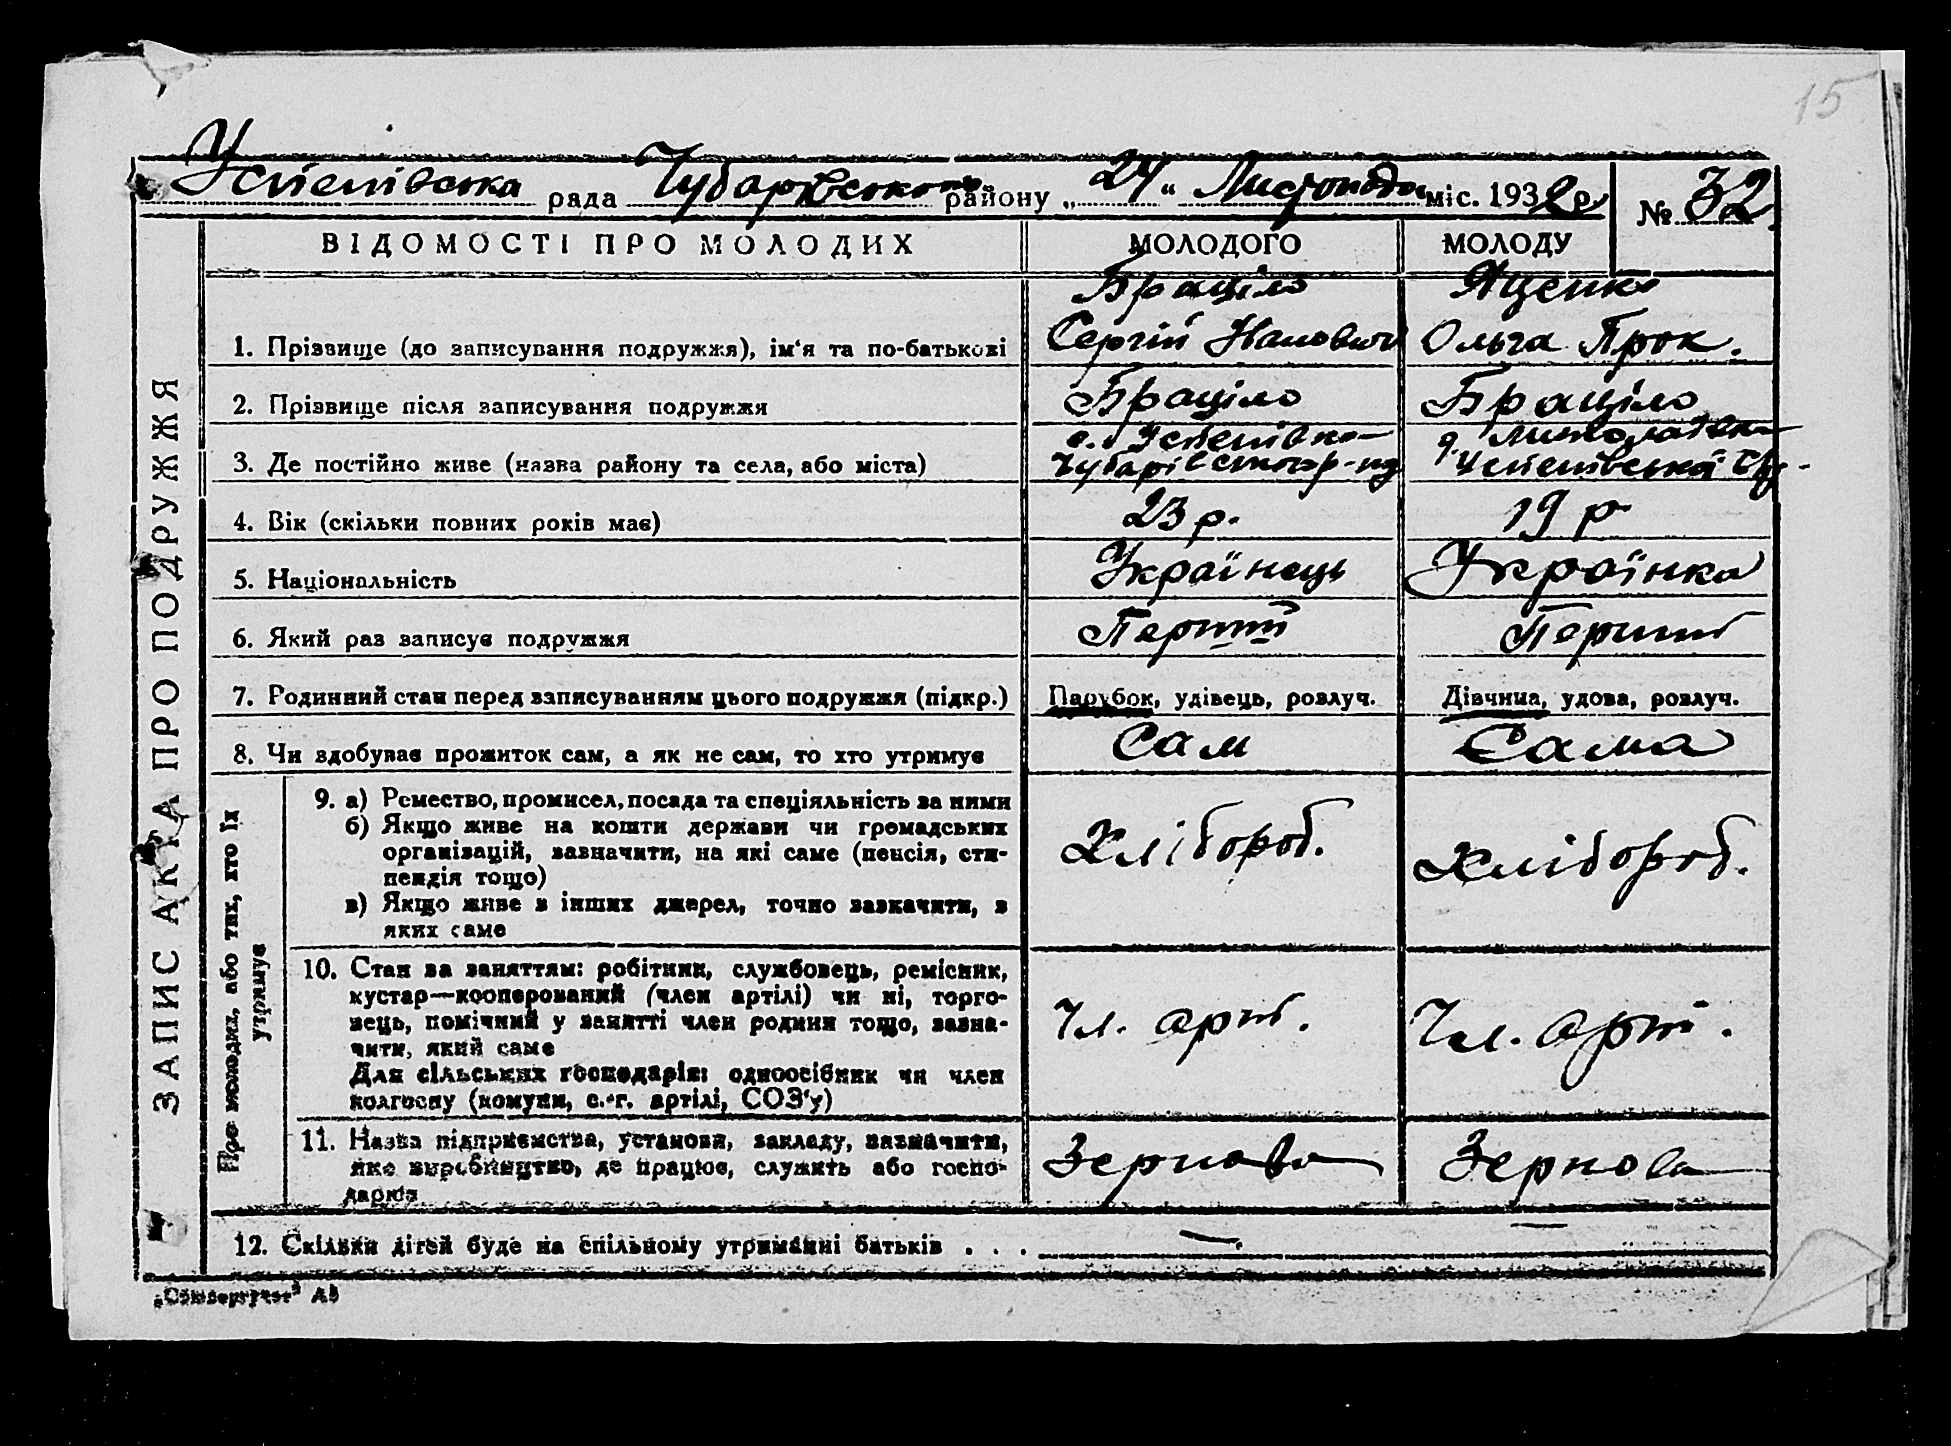 15
Успенівська рада Чубарівського району „24“ Листопада міс. 1932 р № 32
ЗАПИС АКТА ПРО ПОДРУЖЖЯ
ВІДОМОСТІ ПРО МОЛОДИХ МОЛОДОГО МОЛОДУ
Браціло Яценко
1. Прізвище (до записування подружжя), ім'я та по-батькові Сергій Ольга Прок.
2. Прізвище після записування подружжя Браціло Браціло
с. Успенівка
3. Де постійно живе (назва району та села, або міста) Чубарівського р-ну Успенівської
4. Вік (скільки повних років має) 23 р. 19 р
5. Національність Українець Українка
6. Який раз записує подружжя Перший Перший
7. Родинний стан перед записуванням цього подружжя (підкр.) Парубок, удівець, розлуч. Дівчина, удова, розлуч.
8. Чи здобуває прожиток сам, а як не сам, то хто утримує Сам Сама
Про молодих, або тих, хто їх
утримує
9. а) Ремество, промисел, посада та спеціяльність за ними
б) Якщо живе на кошти держави чи громадських
організацій, зазначити, на які саме (пенсія, сти-
пендія тощо)
в) Якщо живе з інших джерел, точно зазначити, з
яких саме
Хлібороб. Хлібороб.
10. Стан за заняттям: робітник, службовець, ремісник,
кустар—кооперований (член артілі) чи ні, торго-
вець, помічний у занятті член родини тощо, зазна-
чити, який саме
Для сільських господарів: одноосібник чи член
колгоспу (комуни, с.-г. артілі, СОЗ'у)
Чл. арт. Чл. арт.
11. Назва підприємства, установи, закладу, зазначити,
яке виробництво, де працює, служить або госпо-
дарює
Зернова Зернова
12. Скільки дітей буде на спільному утриманні батьків . . . — —